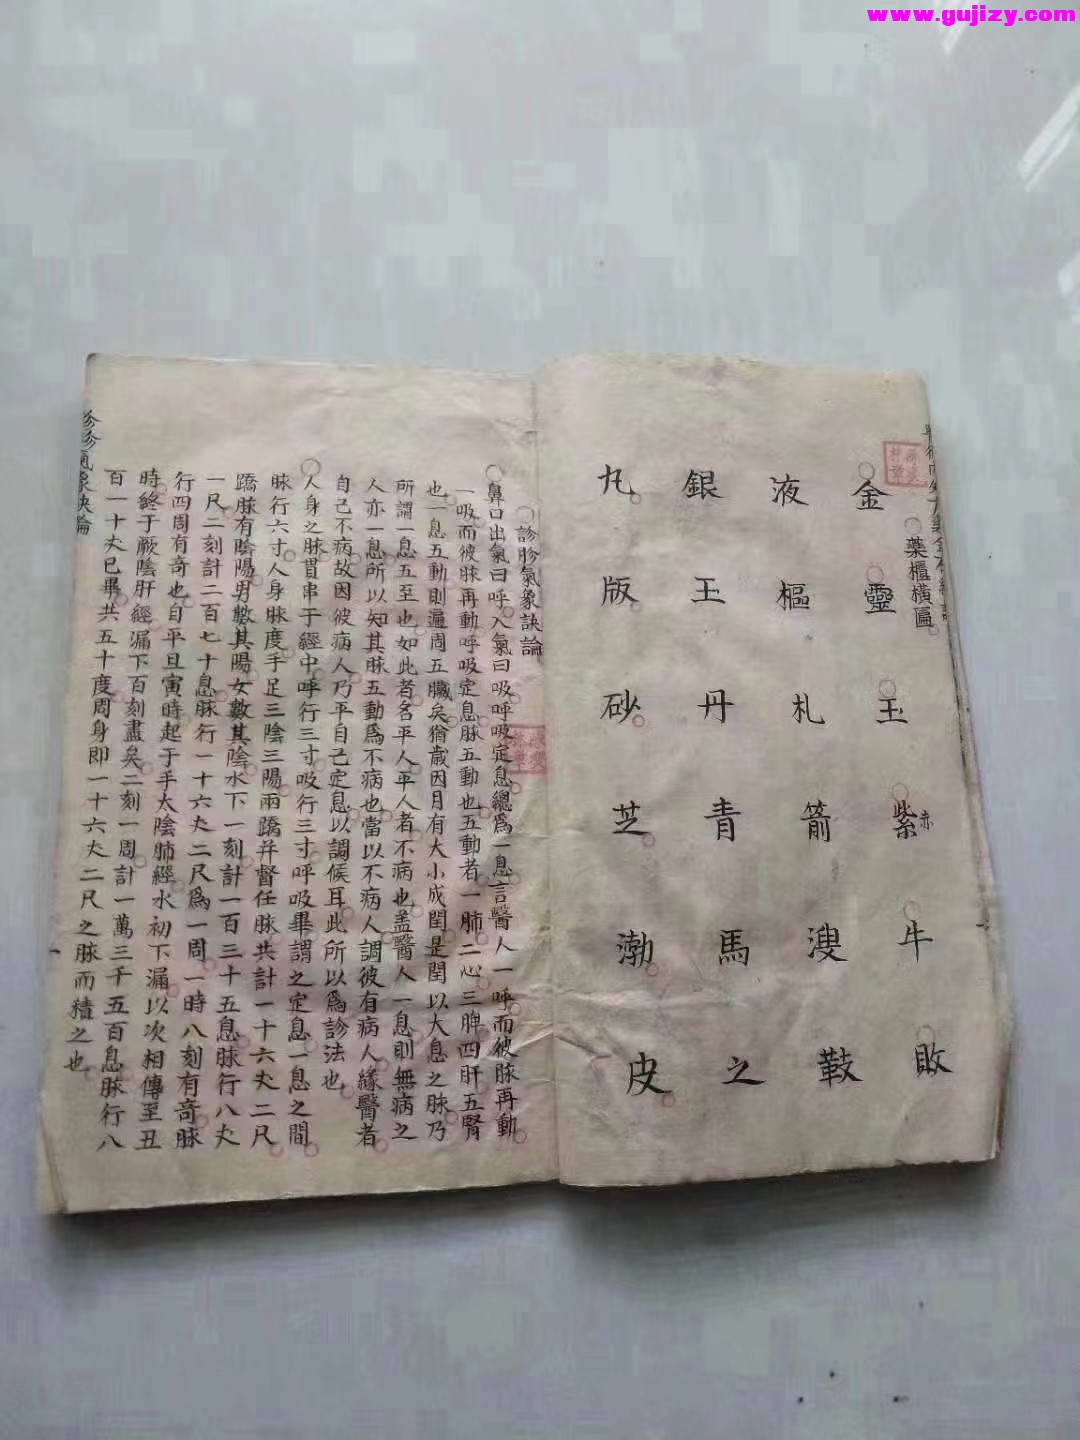 www.gujizy.com
藥櫃橫匾
金液銀丸
靈樞王版
玉札丹砂
紫赤箭青芝
牛溲馬渤
敗皷之皮
診胗氣象訣論
鼻口出氣曰呼入氣曰吸呼吸定息總爲一息言醫人一呼而彼脉再動
一吸而彼脉再動呼吸定息脉五動也五動者一肺二心三脾四肝五腎
也一息五動則遍周五臟矣猶歲因月有大小成閏是閏以大息之脉乃
所謂一息五至也如此者名平人平人者不病也盖醫人一息則無病之
人亦一息所以知其脉五動爲不病也當以不病人調彼有病人緣醫者
自己不病故因彼病人乃平自己定息以調候耳此所以爲診法也
人身之脉貫串于經中呼行三寸吸行三寸呼吸畢謂之定息一息之間
脉行六寸人身脉度手足三陰三陽兩蹻并督任脉共計一十六丈二尺
蹻脉有陰陽男數其陽女數其陰水下一刻計一百三十五息脉行八丈
一尺二刻計二百七十息脉行一十六丈二尺爲一周一時八刻有奇脉
行四周有奇也自平旦寅時起于手太陰肺經水初下漏以次相傳至丑
時終于厥陰肝經漏下百刻盡矣二刻一周計一萬三千五百息脉行八
百一十丈已畢共五十度周身即一十六丈二尺之脉而積之也
診胗氣象訣論